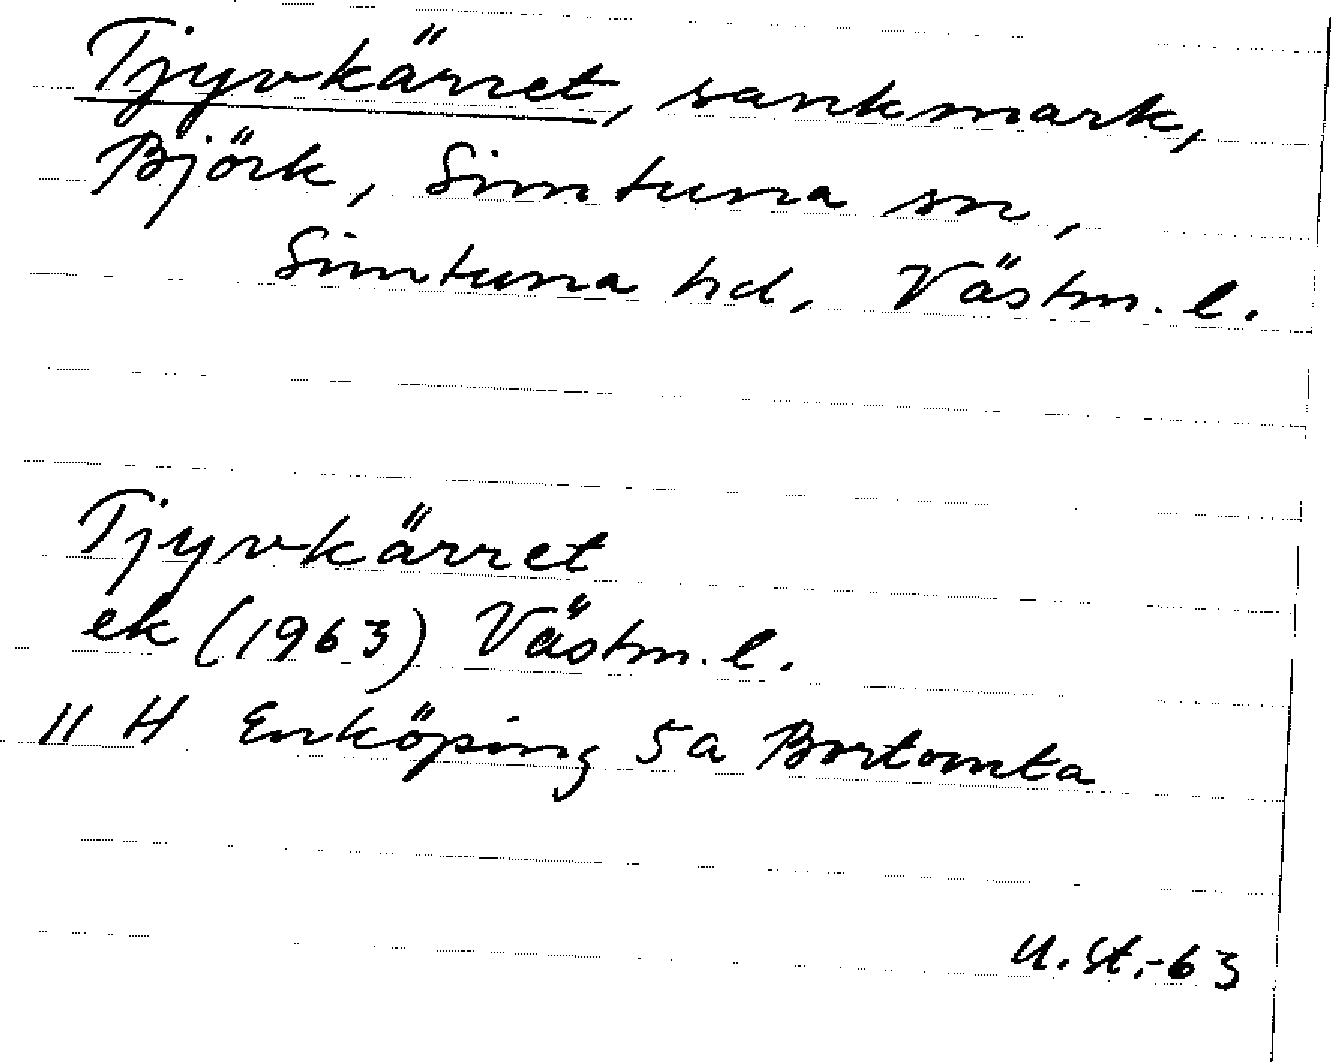 Tjyvkärret, sankmark,
Björk, Simtuna sn,
Simtuna hd, Västm. l.
Tjyvkärret
ek (1963) Västm. l.
11 H Enköping 5a Bortomta
U. St. -63